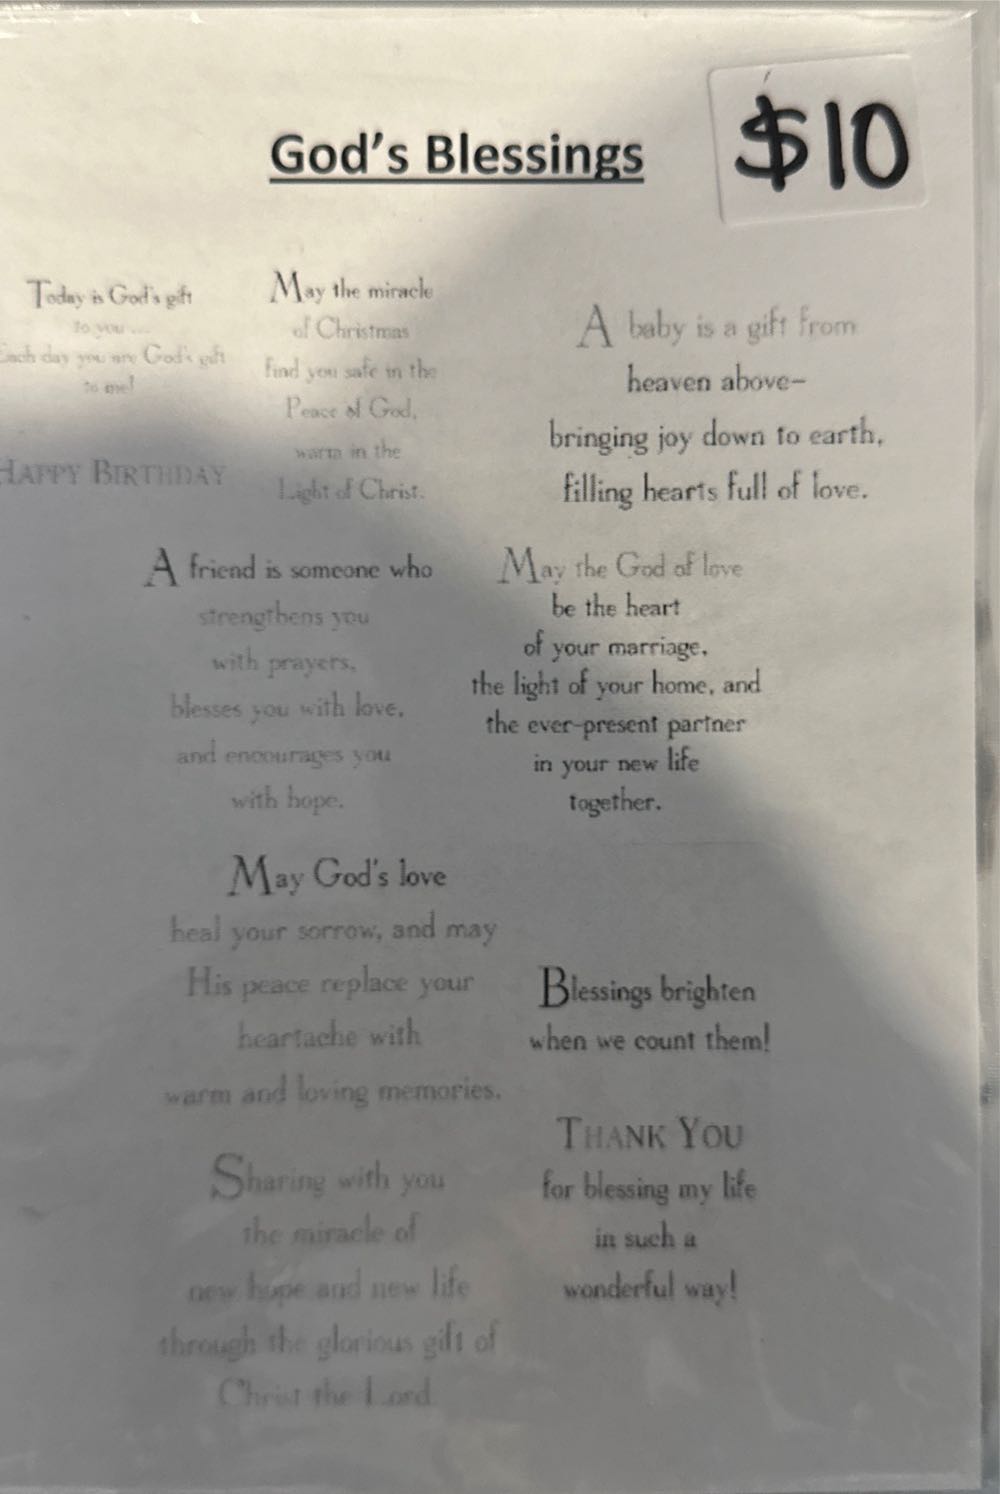 $10
God's Blessings
Today is God's gift
to you ...
Each day you are God's gift
to me!
HAPPY BIRTHDAY
May the miracle
of Christmas
find you safe in the
Peace of God,
warm in the
Light of Christ.
A baby is a gift from
heaven above–
bringing joy down to earth,
filling hearts full of love.
A friend is someone who
strengthens you
with prayers,
blesses you with love,
and encourages you
with hope.
May the God of love
be the heart
of your marriage,
the light of your home, and
the ever-present partner
in your new life
together.
May God's love
heal your sorrow, and may
His peace replace your
heartache with
warm and loving memories.
Blessings brighten
when we count them!
Sharing with you
the miracle of
new hope and new life
through the glorious gift of
Christ the Lord
THANK YOU
for blessing my life
in such a
wonderful way!